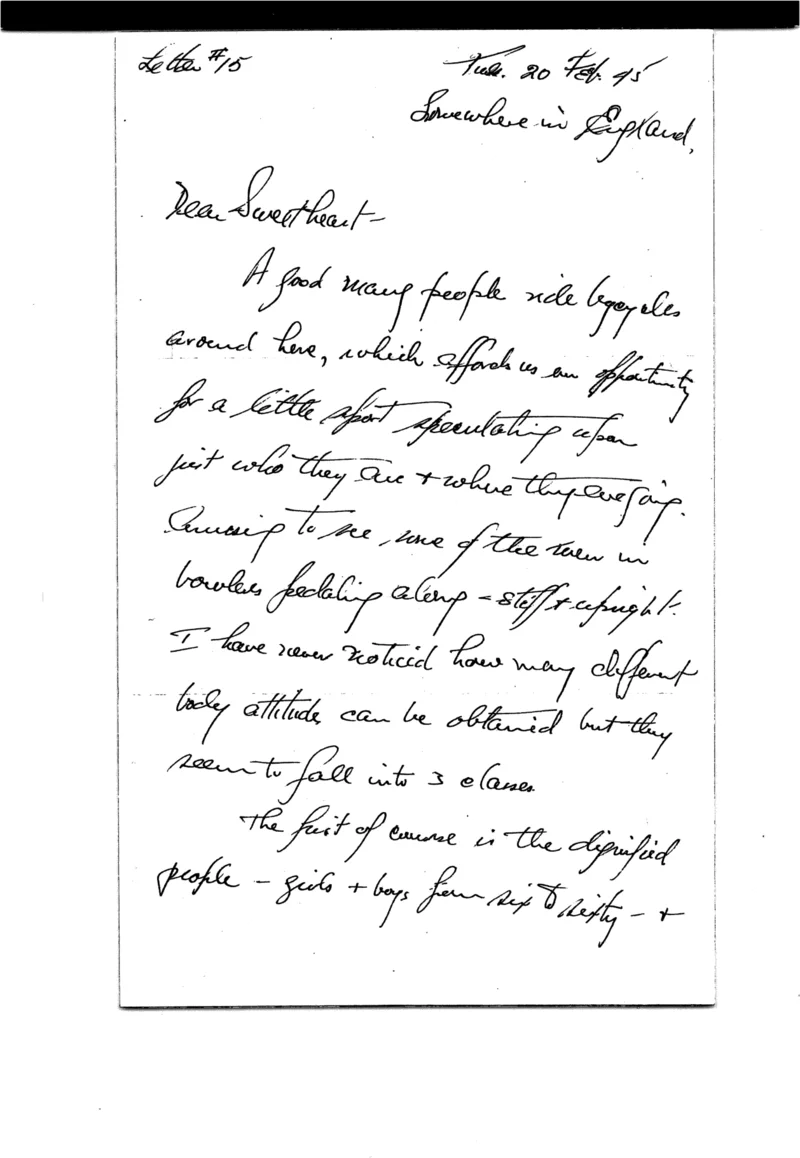 Letter #15
Tues. 20 Feb. 45
Somewhere in England,
Dear Sweetheart –
A good many people ride bycycles
around here, which affords us an opportunity
for a little sport speculating upon
just who they are + where they are going.
Amusing to see, some of the men in
bowlers pedaling along – stiff + upright.
I have never noticed how many different
body attitudes can be obtained but they
seem to fall into 3 classes.
The first of course is the dignified
people – girls + boys from six to sixty – +